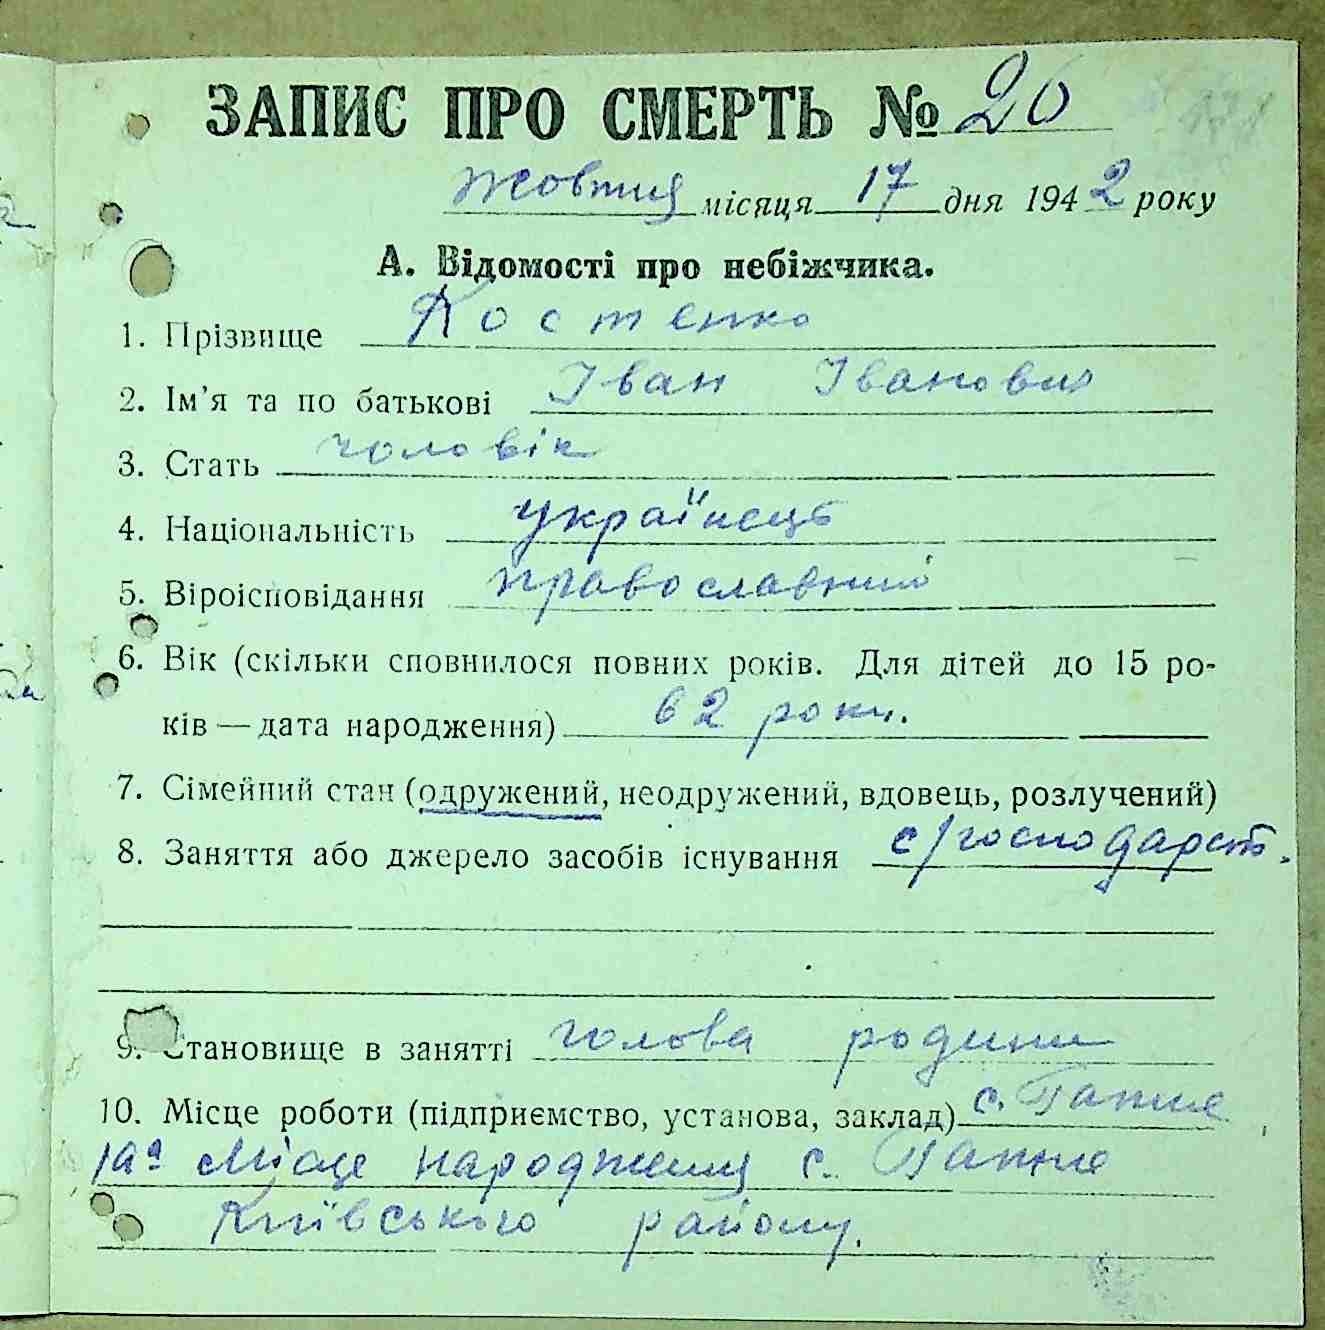 ЗАПИС ПРО СМЕРТЬ № 26
жовтня місяця 17 дня 1942 року
А. Відомості про небіжчика.
1. Прізвище Костенко
2. Ім'я та по батькові Іван Іванович
3. Стать чоловік
4. Національність українець
5. Віроісповідання православний
6. Вік (скільки сповнилося повних років. Для дітей до 15 ро-
ків — дата народження) 62 роки.
7. Сімейний стан (одружений, неодружений, вдовець, розлучений)
8. Заняття або джерело засобів існування с/господарств.
9. Становище в занятті голова родини
10. Місце роботи (підприємство, установа, заклад) с. Гатне
10а Місце народження с. Гатне
Київського району.